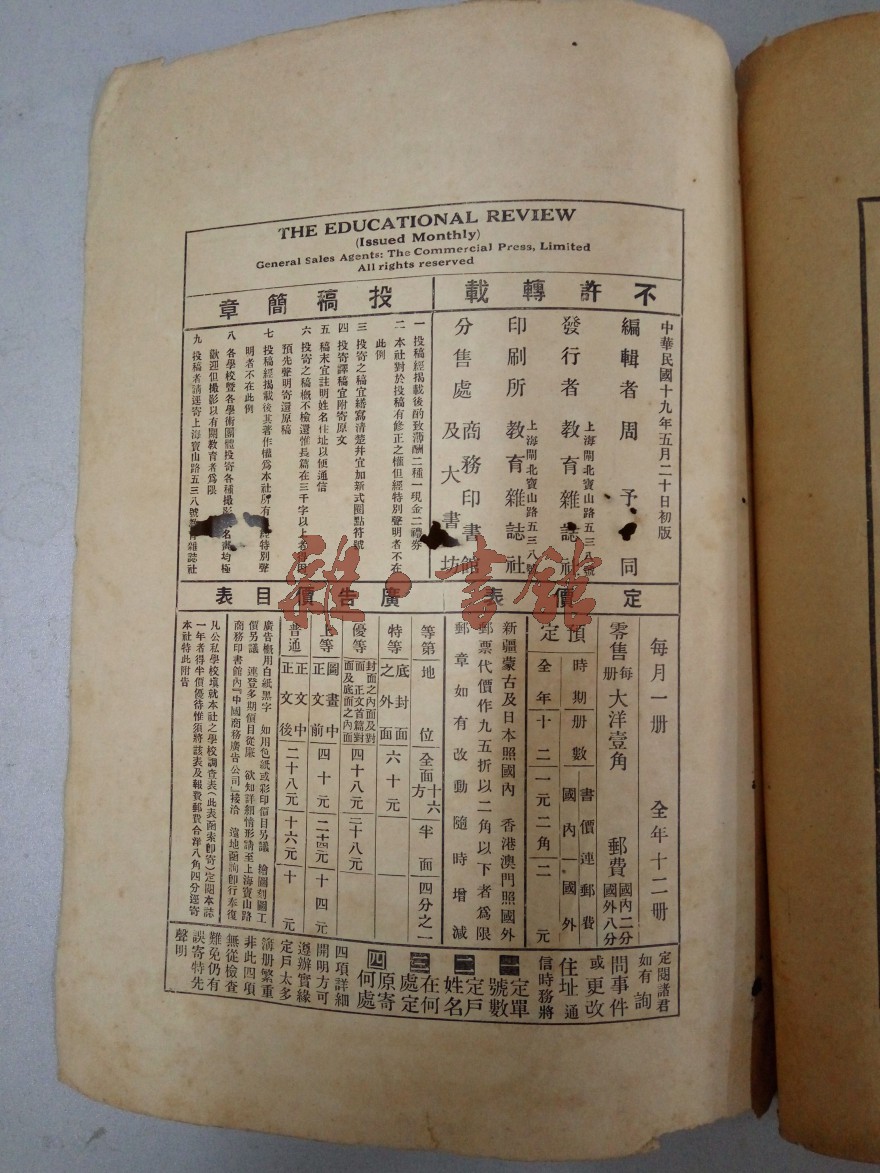 THE EDUCATIONAL REVIEW
(Issued Monthly)
General Sales Agents: The Commercial Press, Limited
All rights reserved
不許轉載
中華民國十九年五月二十日初版
編輯者 周予同
發行者 教育雜誌社
上海閘北寶山路五三八號
印刷所 教育雜誌社
上海閘北寶山路五三八號
分售處 商務印書館
及大書坊
投稿簡章
一 投稿經揭載後酌致薄酬二種一現金二禮券
二 本社對於投稿有修正之權但經特別聲明者不在
此例
三 投寄之稿宜繕寫清楚并宜加新式圈點符號
四 投寄譯稿宜附寄原文
五 稿末宜註明姓名住址以便通信
六 投寄之稿概不檢還惟長篇在三千字以上者得因
預先聲明寄還原稿
七 投稿經揭載後其著作權為本社所有 經特別聲
明者不在此例
八 各學校暨各學術團體投寄各種攝影 名 均極
歡迎但攝影以有關教育者為限
九 投稿者請逕寄上海寶山路五三八號教育雜誌社
定價表
每月一冊 全年十二冊
零售每冊大洋壹角 郵費國內二分國外八分
預定
時期 冊數 書價連郵費
國內 國外
全年 十二 一元二角 二元
新疆蒙古及日本照國內 香港澳門照國外
郵票代價作九五折以二角以下者為限
郵章如有改動隨時增減
廣告價目表
等第 地位 全面 半面 四分之一
方十六
特等 底封面之外面 六十元
優等 封面之內面及對面正文首篇對面及底面之內面 四十八元 二十八元
上等 圖畫中正文前 四十元 二十四元 十四元
普通 正文中正文後 二十八元 十六元 十元
廣告概用白紙黑字 如用色紙或彩印價目另議 繪圖刻圖工
價另議 連登多期價目從廉 欲知詳細情形請至上海寶山路
商務印書館內『中國商務廣告公司』接洽 遠地函詢即行奉復
凡公私學校填就本社之學校調查表(此表函索即寄)定閱本誌
一年者得半價優待惟須將該表及報費郵費合洋八角四分逕寄
本社特此附告
定閱諸君
如有詢
問事件
或更改
住址通
信時務將
一定單號數
二定戶姓名
三在何處定
四原寄何處
四項詳細
開明方可
遵辦實緣
定戶太多
簿冊繁重
非此四項
無從檢查
難免仍有
誤寄特先
聲明
雜·書館